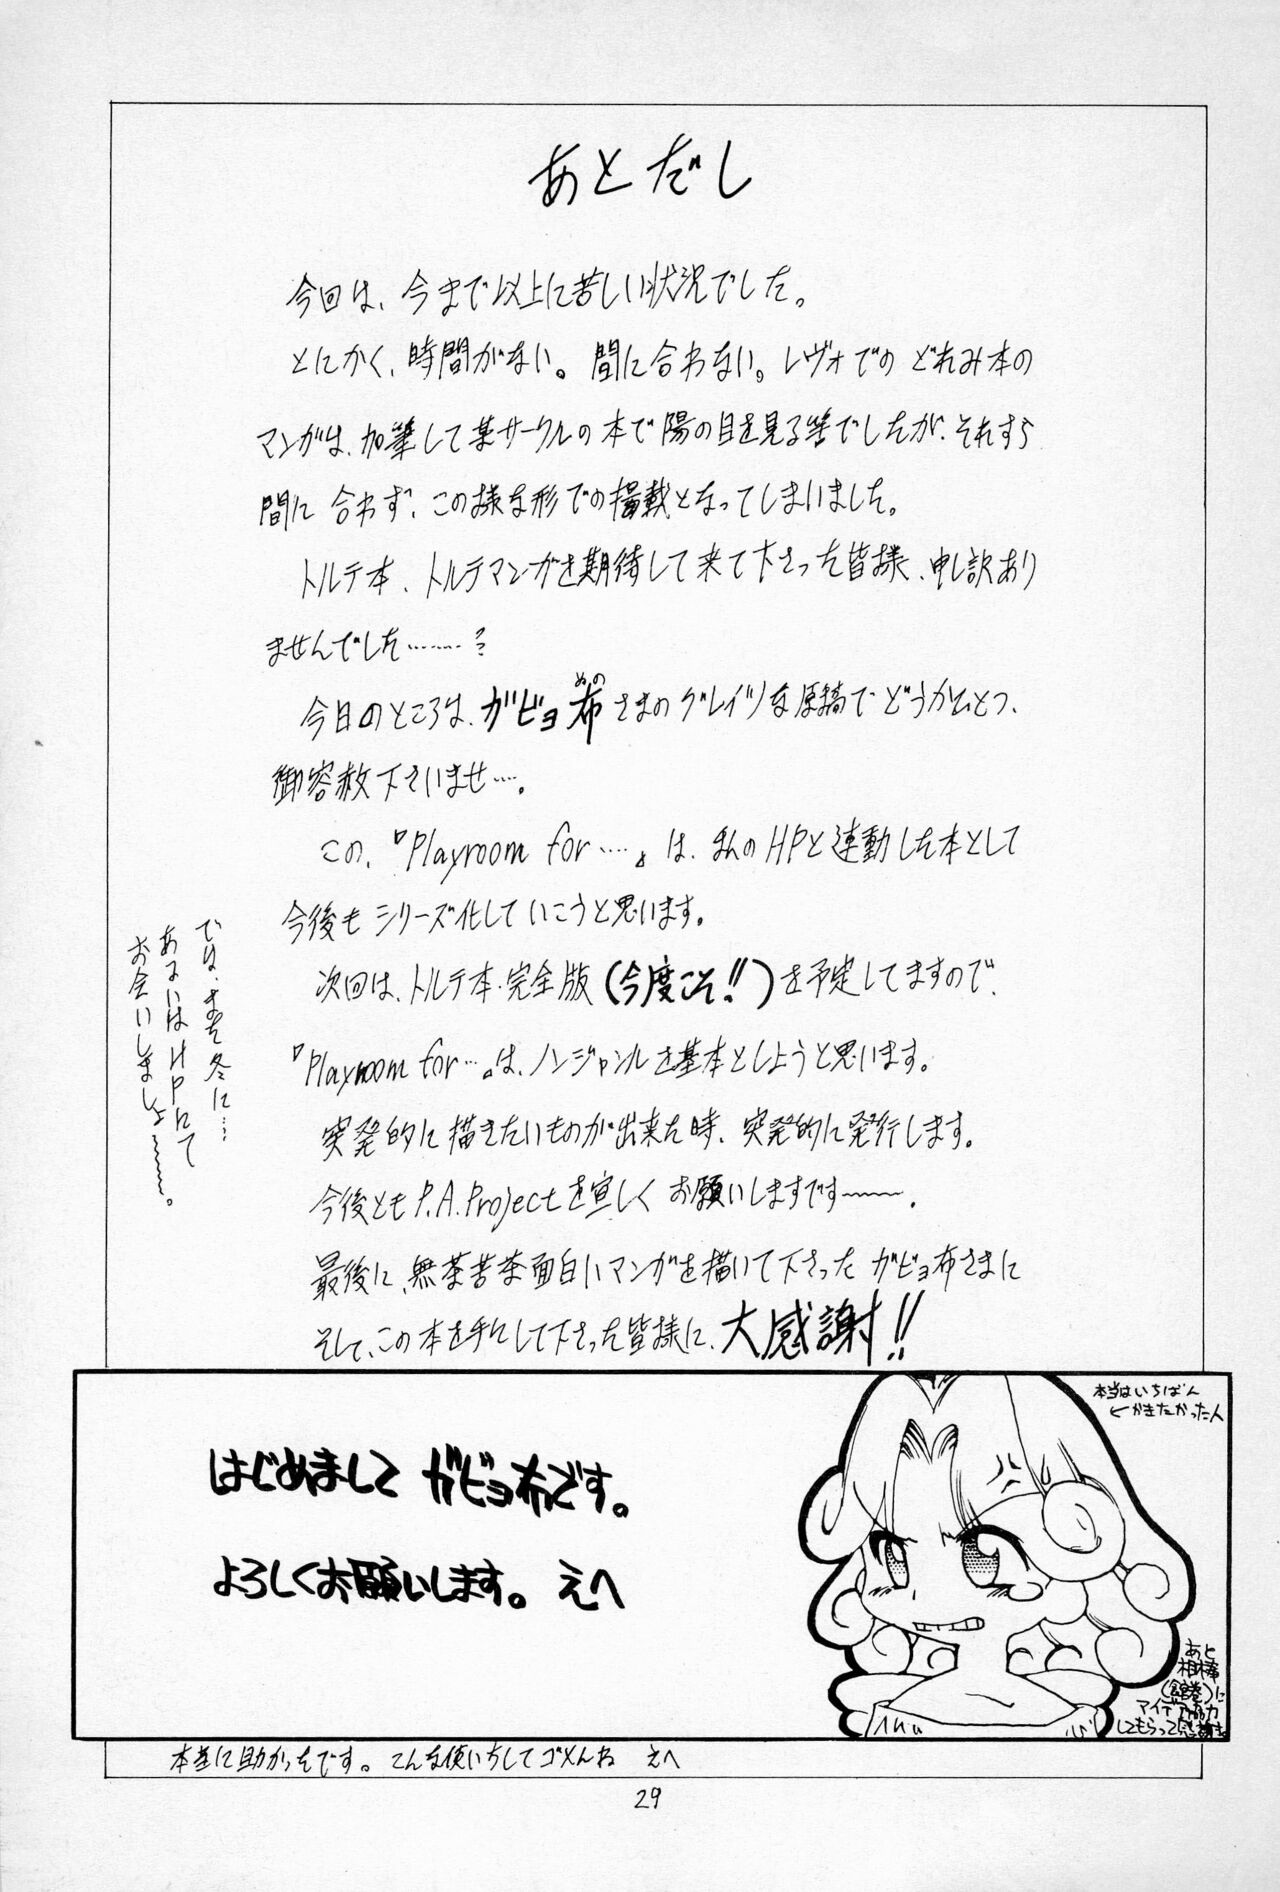 あとだし
今回は、今まで以上に苦しい状況でした。
とにかく、時間がない。間に合わない。レヴォでの どれみ本の
マンガは、加筆して某サークルの本で陽の目を見る筈でしたが、それすら
間に合わず、この様な形での掲載となってしまいました。
トルテ本、トルテマンガを期待して来て下さった皆様、申し訳あり
ませんでした………?
ぬの
今日のところは、ガビョ布さまのグレイツな原稿で どうかひとつ、
御容赦下さいませ…。
この、『Playroom for……』は、まんのHPと連動した本として
今後も シリーズ化して いこうと思います。
次回は、トルテ本・完全版(今度こそ!!)を予定してますので、
『Playroom for…』は、ノンジャンルを基本としようと思います。
突発的に描きたいものが出来た時、突発的に発行します。
今後ともP.A.Projectを宜しく お願いしますです〜〜。
最後に、無茶苦茶面白いマンガを描いて下さった ガビョ布さまに
そして、この本を手にして下さった皆様に、大感謝!!
では、また冬に…
あるいはHPにて
お会いしましょ〜〜。
本当はいちばん
←かきたかった人
はじめまして ガビョ布です。
よろしくお願いします。 えへ
あと
相棒
に
アイデア協力
してもらって感謝を。
本当に助かったです。こんな使い方してゴメんね えへ
29